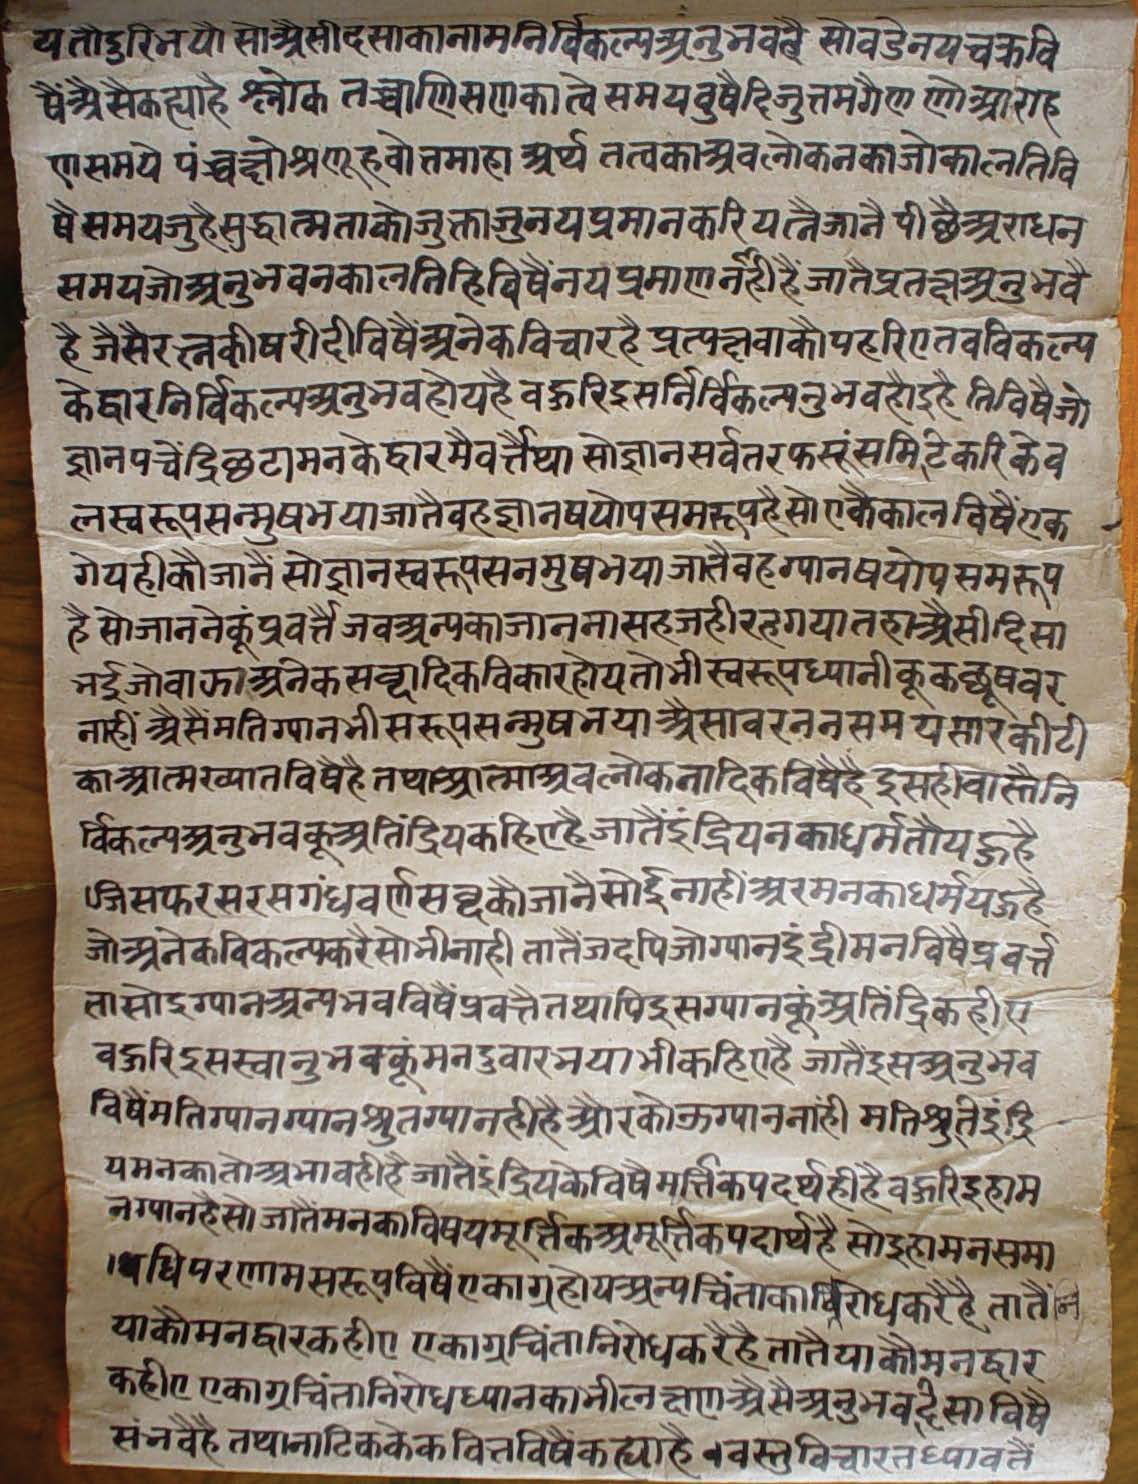 यतोदुरिभयो सोअैसीदसाकानामनिर्विकल्पअनुभवहै सोवडेनयचक्रवि
षैंअैसैकह्याहै श्लोक तच्चाणिसणकात्वेसमयवुषैदिजुत्तमगैण णोआराह
णसमये पंच्चह्नोअणूहवोतमाहा अर्थ तत्वकाअवलोकनकाजोकालतिवि
षैसमयजुहैसुद्धात्मताकोजुक्ताजुनयप्रमानकरियत्नैजानै पीछैअराधन
समयजोअनुभवनकालतिहिविषैंनयप्रमाणनहीहैंजातैप्रतक्षअनुभवै
है जैसैरत्नकीषरीदीविषैंअनेकविचारहै प्रत्यक्षवाकौपहरिएतवविकल्प
केद्वारनिर्विकल्पअनुभवहोयहै वहुरिइसर्निर्विकल्पनुभवहोइहै तिविषैजो
ज्ञानपचेंद्रिछटामनकेद्वारमैवर्त्तैथा सोज्ञानसर्वतरफसूंसमिटिकरिकेव
लस्वरूपसन्मुषभयाजातैवहज्ञानषयोपसमरूपहैसोएकैकालविषैंएक
गेयहीकौजानैं सोज्ञानस्वरूपसनमुषभयाजातैवहग्यानषयोपसमरूप
है सोजाननेकूंप्रवर्त्तैजवअन्यकाजाननासहजहीरहगयातहाअैसीदिसा
भईजोवाकाअनेकसव्दादिकविकारहोयतोभीस्वरूपध्यानीकूकछूषवर
नाहीं अैसैंमतिग्यानभीसरूपसन्मुषभयाअैसावरननसमयसारकीटी
काआत्मख्यातविषैहैतथाआत्माअवलोकनादिकविषैहै इसहीवास्तैनि
र्विकल्पअनुभवकूअतिंद्रियकहिएहैजातैंइंद्रियनकाधर्मतौयहुहै
जिसफरसरसगंधवर्णसव्दकौजानैसोईनाहींअरमनकाधर्मयहुहै
जोअनेकविकल्पकरैसोभीनाही तातैंजदपिजोग्यानइंद्रीमनविषैप्रवर्त्त
तासोइग्यानअन्यभवविषैंप्रवर्त्तैतथापिइसग्यानकूंअतिंद्रिकहीए
वहुरिइसस्वानुभवकूंमनदुवारभयाभीकहिएहै जातैंइसअनुभव
विषैंमतिग्यानग्यानश्रुतग्यानहीहैऔरकोऊग्याननांही मतिश्रुतिइंद्रि
यमनकातोअभावहीहैजातैइंद्रियकेविषैमर्त्तिकपदर्थहीहैवहुरिइहाम
नग्यानहैसोजातैंमनकाविषयमूर्त्तिकअमूर्त्तिकपदार्थहै सोइहामनसमा
धिपरणामसरूपविषैंएकाग्रहोयअन्यचिंताकानिरोधकरैहै तातैं
याकौमनद्वारकहीए एकाग्रचिंतानिरोधकरैहैतातैयाकौमनद्वार
कहीएएकाग्रचिंतानिरोधध्यानकाभीलक्षणअैसैअनुभवदसाविषै
संनवैहै तथानाटिककेकवित्तविषैंकह्योहै १वस्तुविचारतध्यावतैं